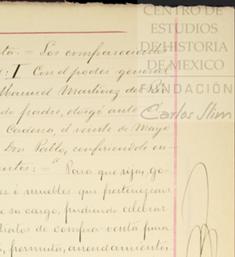 CENTRO DE
ESTUDIOS
DE HISTORIA
DE MEXICO
FUNDACIÓN
Carlos Slim
Los comparecientes
I Con el poder general
Manuel Martinez del Rio
padre, otorgó ante
Cadena, el veinte de Mayo
Don Pablo, confiriendole en
Para que rija, go-
é muebles que pertenezcan
a su cargo, pudiendo celebrar
de compra venta
permuta, arrendamiento,